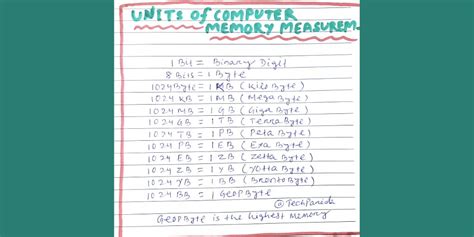 UNITS of COMPUTER
MEMORY MEASUREM.
1 Bit = Binary Digit
8 Bits = 1 Byte
1024 Byte = 1 KB (Kilo Byte)
1024 KB = 1 MB (Mega Byte)
1024 MB = 1 GB (Giga Byte)
1024 GB = 1 TB (Terra Byte)
1024 TB = 1 PB (Peta Byte)
1024 PB = 1 EB (Exa Byte)
1024 EB = 1 ZB (Zetta Byte)
1024 ZB = 1 YB (Yotta Byte)
1024 YB = 1 BB (Bronto Byte)
1024 BB = 1 GeopByte
@TechPanda
GeoPByte is the highest Memory